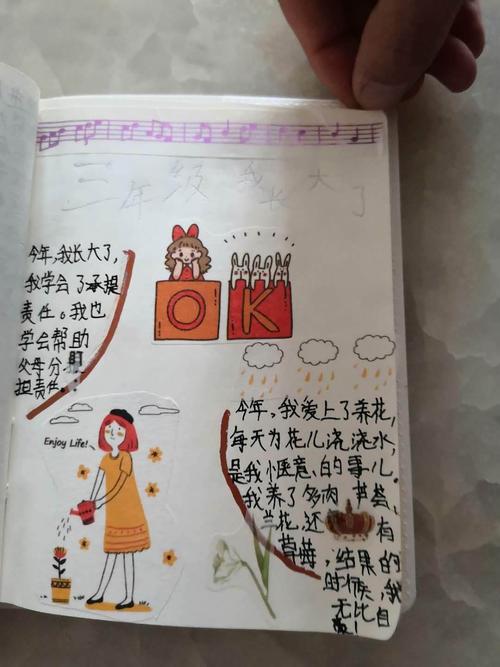 三年级我长大了
今年,我长大了,
我学会了承提
责任。我也
学会帮助
父母分
担责任。
OK
Enjoy Life!
今年,我爱上了养花,
每天为花儿浇浇水,
是我惬意、的事儿。
我养了多肉、芦荟、
兰花,还有
草莓,结果的
时候,我
无比自